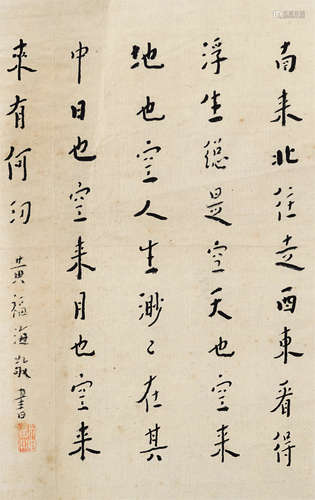 南来北往走西東看得
浮生總是空天也空来
地也空人生渺々在其
中日也空来月也空来
來有何功
黄福海敬書